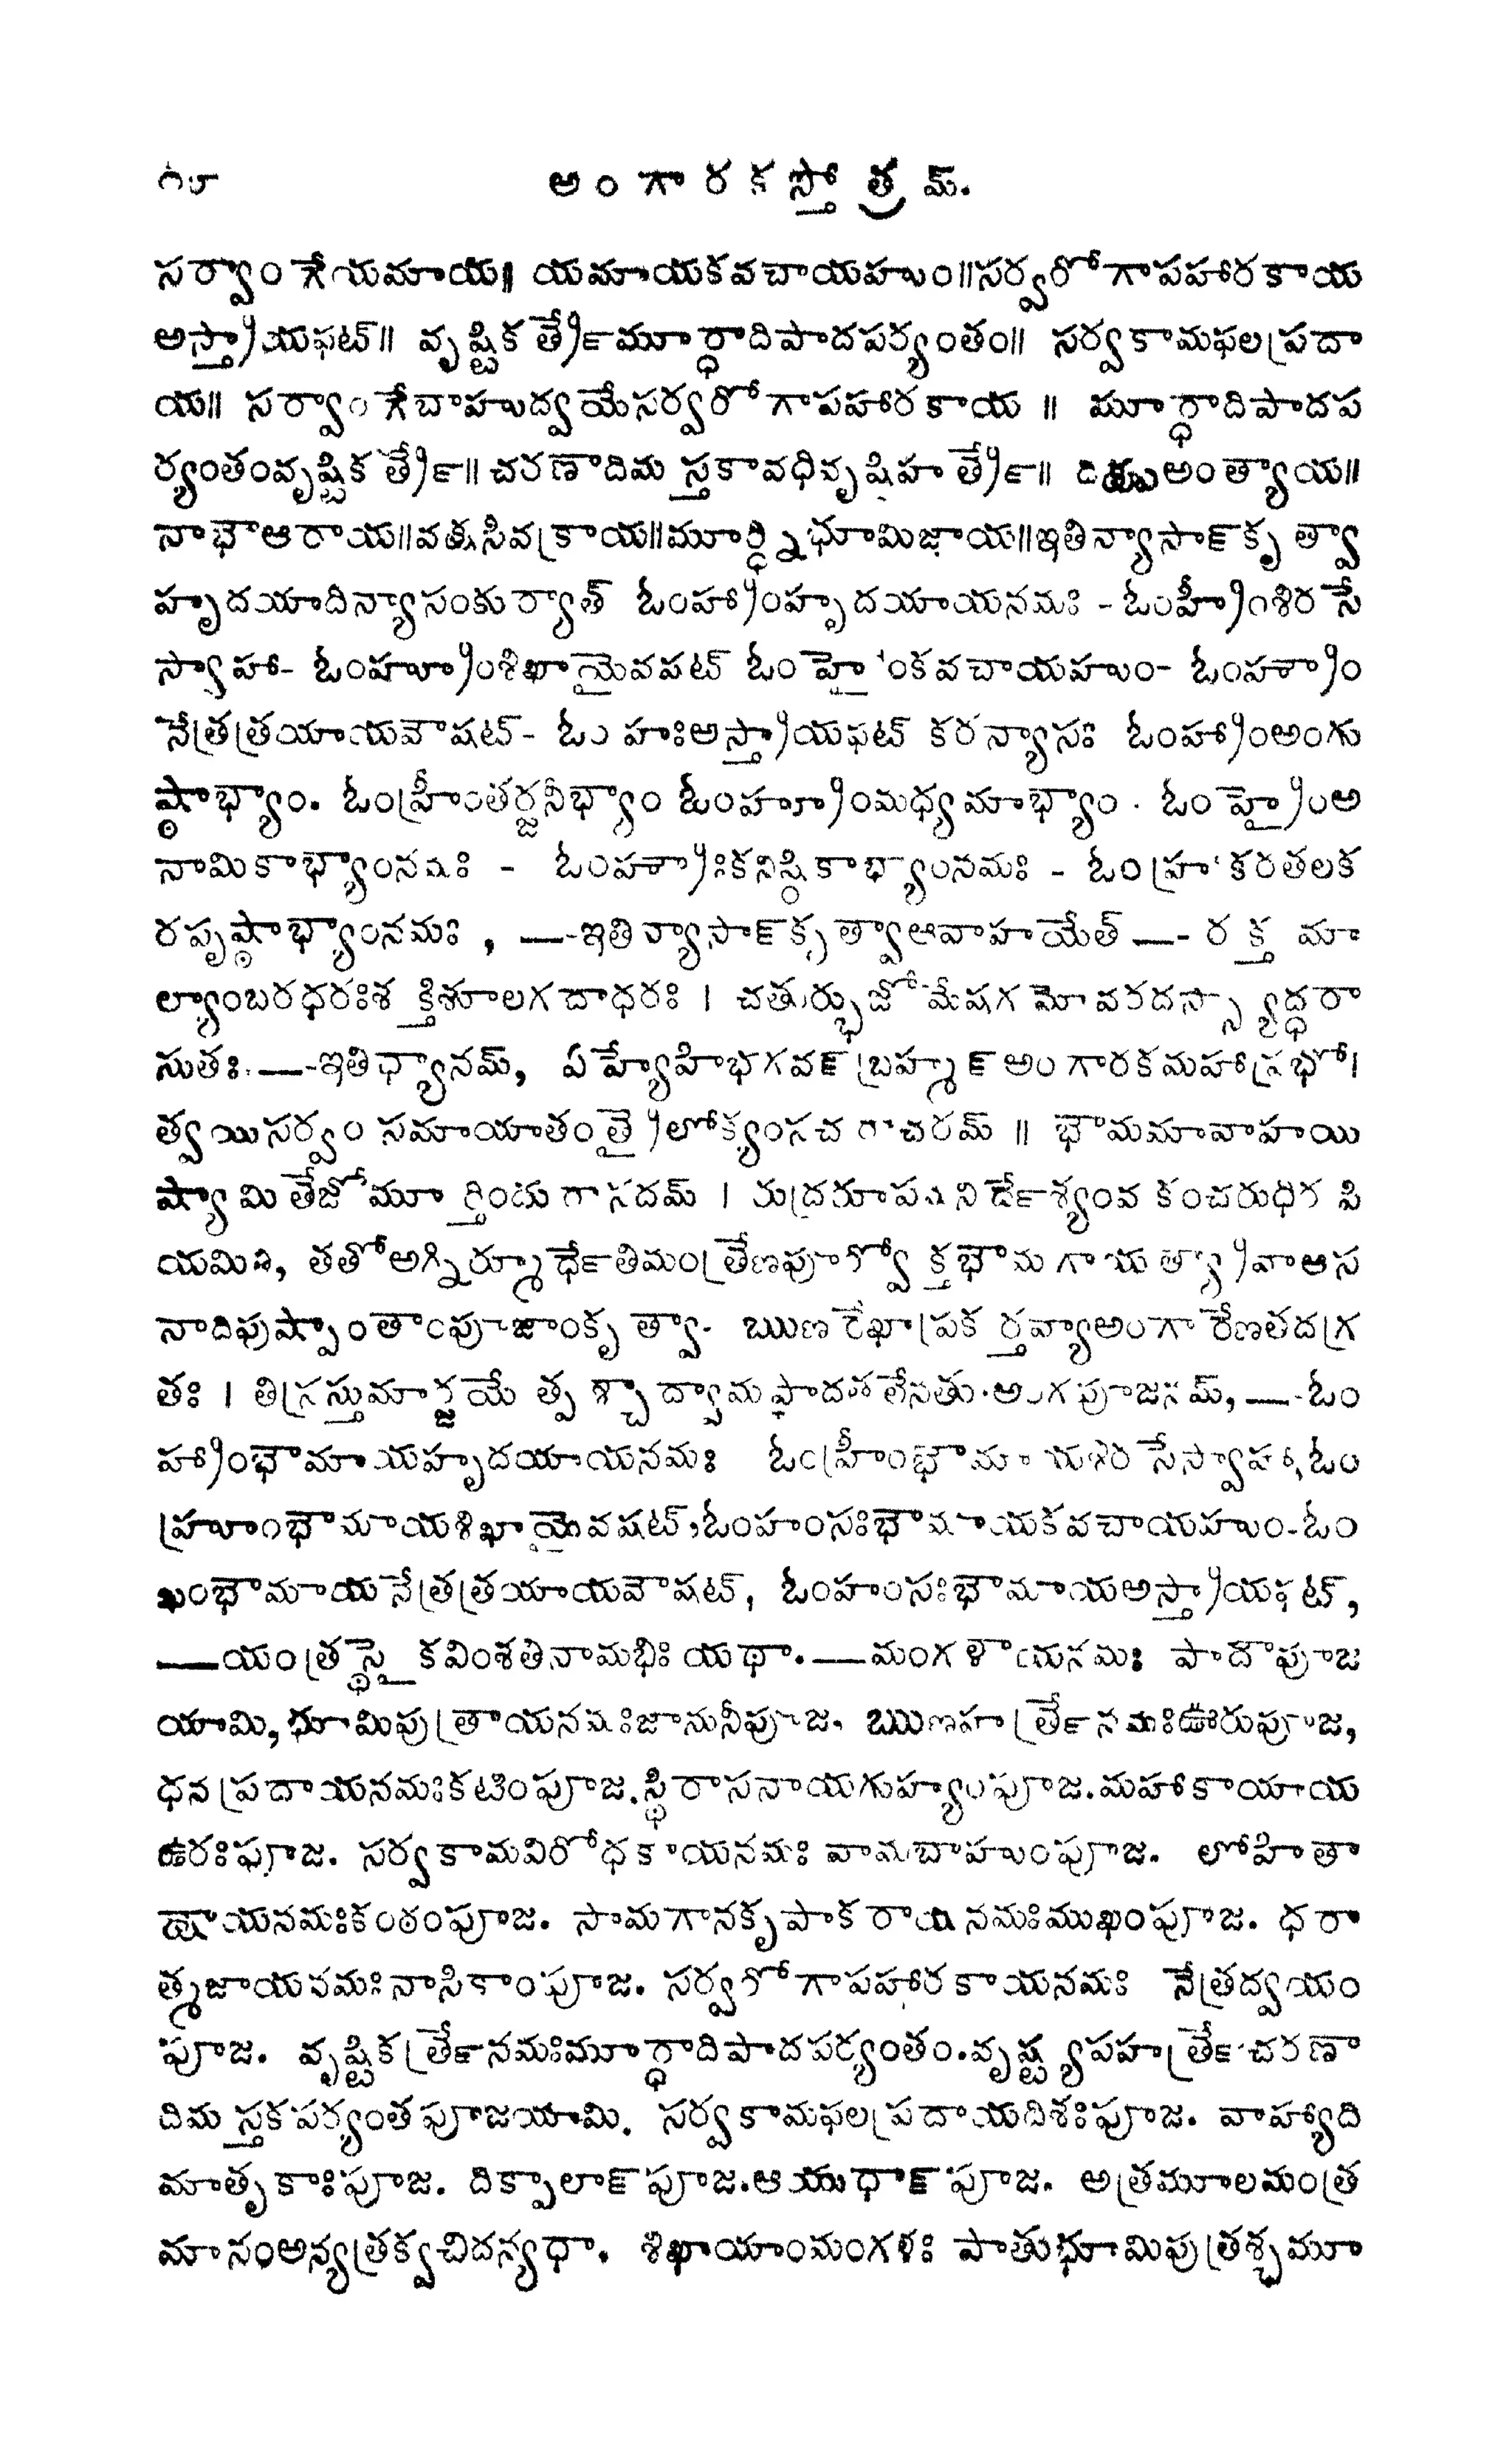 ౧౮ అంగారకస్తోత్రమ్.
సర్వాంగేయమాయ॥ యమాయకవచాయహుం॥సర్వరోగాపహారకాయ
అస్త్రాయఫట్॥ వృష్టికర్త్రే మూర్ధాదిపాదపర్యంతం॥ సర్వకామఫలప్రదా
య॥ సర్వాంగేబాహుద్వయేసర్వరోగాపహారకాయ ॥ మూర్ధాదిపాదప
ర్యంతంవృష్టికర్త్రే॥చరణాదిమస్తకావధివృష్టిహర్త్రే॥ దిక్షుఅంత్యాయ॥
నాభౌఆరాయ॥వక్షసివక్రాయ॥మూర్ధ్నిభూమిజాయ॥ఇతిన్యాసాన్‌కృత్వా
హృదయాదిన్యాసంకుర్యాత్ ఓంహ్రాంహృదయాయనమః - ఓంహ్రీంశిరసే
స్వాహా- ఓంహ్రూంశిఖాయైవషట్ ఓంహ్రైంకవచాయహుం- ఓంహ్రౌం
నేత్రత్రయాయవౌషట్- ఓం హఃఅస్త్రాయఫట్ కరన్యాసః ఓంహ్రాంఅంగు
ష్ఠాభ్యాం. ఓంహ్రీంతర్జనీభ్యాం ఓంహ్రూంమధ్యమాభ్యాం . ఓంహ్రైంఅ
నామికాభ్యాంనమః - ఓంహ్రౌంకనిష్ఠికాభ్యాంనమః - ఓంహ్రః కరతలక
రపృష్ఠాభ్యాంనమః , —-ఇతిన్యాసాన్‌కృత్వాఆవాహయేత్ —- రక్తమా
ల్యాంబరధరఃశక్తిశూలగదాధరః । చతుర్భుజోమేషగమోవరదస్స్యాద్ధరా
సుతః.—-ఇతిధ్యానమ్, ఏహ్యేహిభగవన్‌బ్రహ్మన్ అంగారకమహాప్రభో।
త్వయిసర్వం సమాయాతంత్రైలోక్యంసచరాచరమ్ ॥ భౌమమావాహయి
ష్యామి తేజోమూర్తిందురాసదమ్ । రుద్రరూపమనిర్దేశ్యంవక్రంచరుధిరప్రి
యమితి, తతోఅగ్నిర్మూర్ధేతిమంత్రేణపూర్వోక్తభౌమగాయత్ర్యావాఆస
నాదిపుష్పాంతాంపూజాంకృత్వా- ఋణరేఖాప్రకర్తవ్యాఅంగారేణతదగ్ర
తః । తిస్రస్తుమార్జయేత్పశ్చాద్వామపాదతలేనతు.అంగపూజనమ్,—-ఓం
హ్రాంభౌమాయహృదయాయనమః ఓంహ్రీంభౌమాయశిరసేస్వాహా,ఓం
హ్రూంభౌమాయశిఖాయైవషట్,ఓంహంసఃభౌమాయకవచాయహుం-ఓం
ఖంభౌమాయనేత్రత్రయాయవౌషట్, ఓంహంసఃభౌమాయఅస్త్రాయఫట్,
—యంత్రస్థైకవింశతినామభిః యథా.—మంగళాయనమః పాదౌపూజ
యామి,భూమిపుత్రాయనమఃజానునీపూజ. ఋణహర్త్రేనమఃఊరుపూజ,
ధనప్రదాయనమఃకటింపూజ.స్థిరాసనాయగుహ్యంపూజ.మహాకాయాయ
ఉరఃపూజ. సర్వకామవిరోధకాయనమః వామబాహుంపూజ. లోహితా
క్షాయనమఃకంఠంపూజ. సామగానకృపాకరాయనమఃముఖంపూజ. ధరా
త్మజాయనమఃనాసికాంపూజ. సర్వరోగాపహారకాయనమః నేత్రద్వయం
పూజ. వృష్టికర్త్రేనమఃమూర్ధాదిపాదపర్యంతం.వృష్ట్యపహర్త్రేచరణా
దిమస్తకపర్యంతపూజయామి. సర్వకామఫలప్రదాయదిశఃపూజ. వాహ్యాది
మాతృకాఃపూజ. దిక్పాలాన్‌పూజ.ఆయుధాన్‌పూజ. అత్రమూలమంత్ర
మానంఅన్యత్రక్వచిదన్యధా. శిఖాయాంమంగళః పాతుభూమిపుత్రశ్చమూ